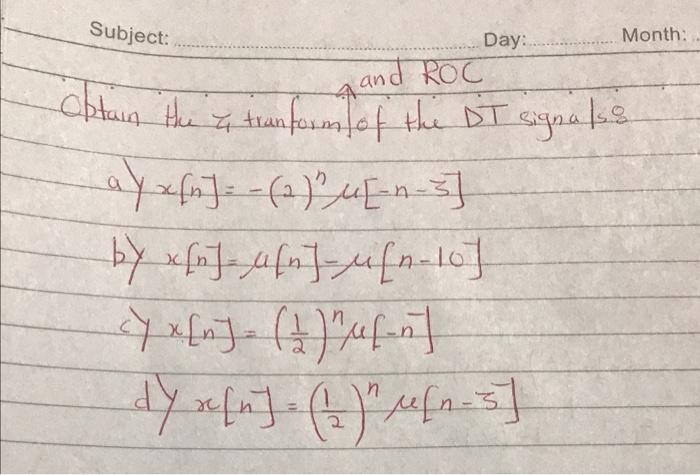 Subject: Day: Month:
and ROC
Obtain the z tranform of the DT signals:
a) x[n] = -(2)^n μ[-n-3]
b) x[n] = μ[n] - μ[n-10]
c) x[n] = (1/2)^n μ[-n]
d) x[n] = (1/2)^n μ[n-5]